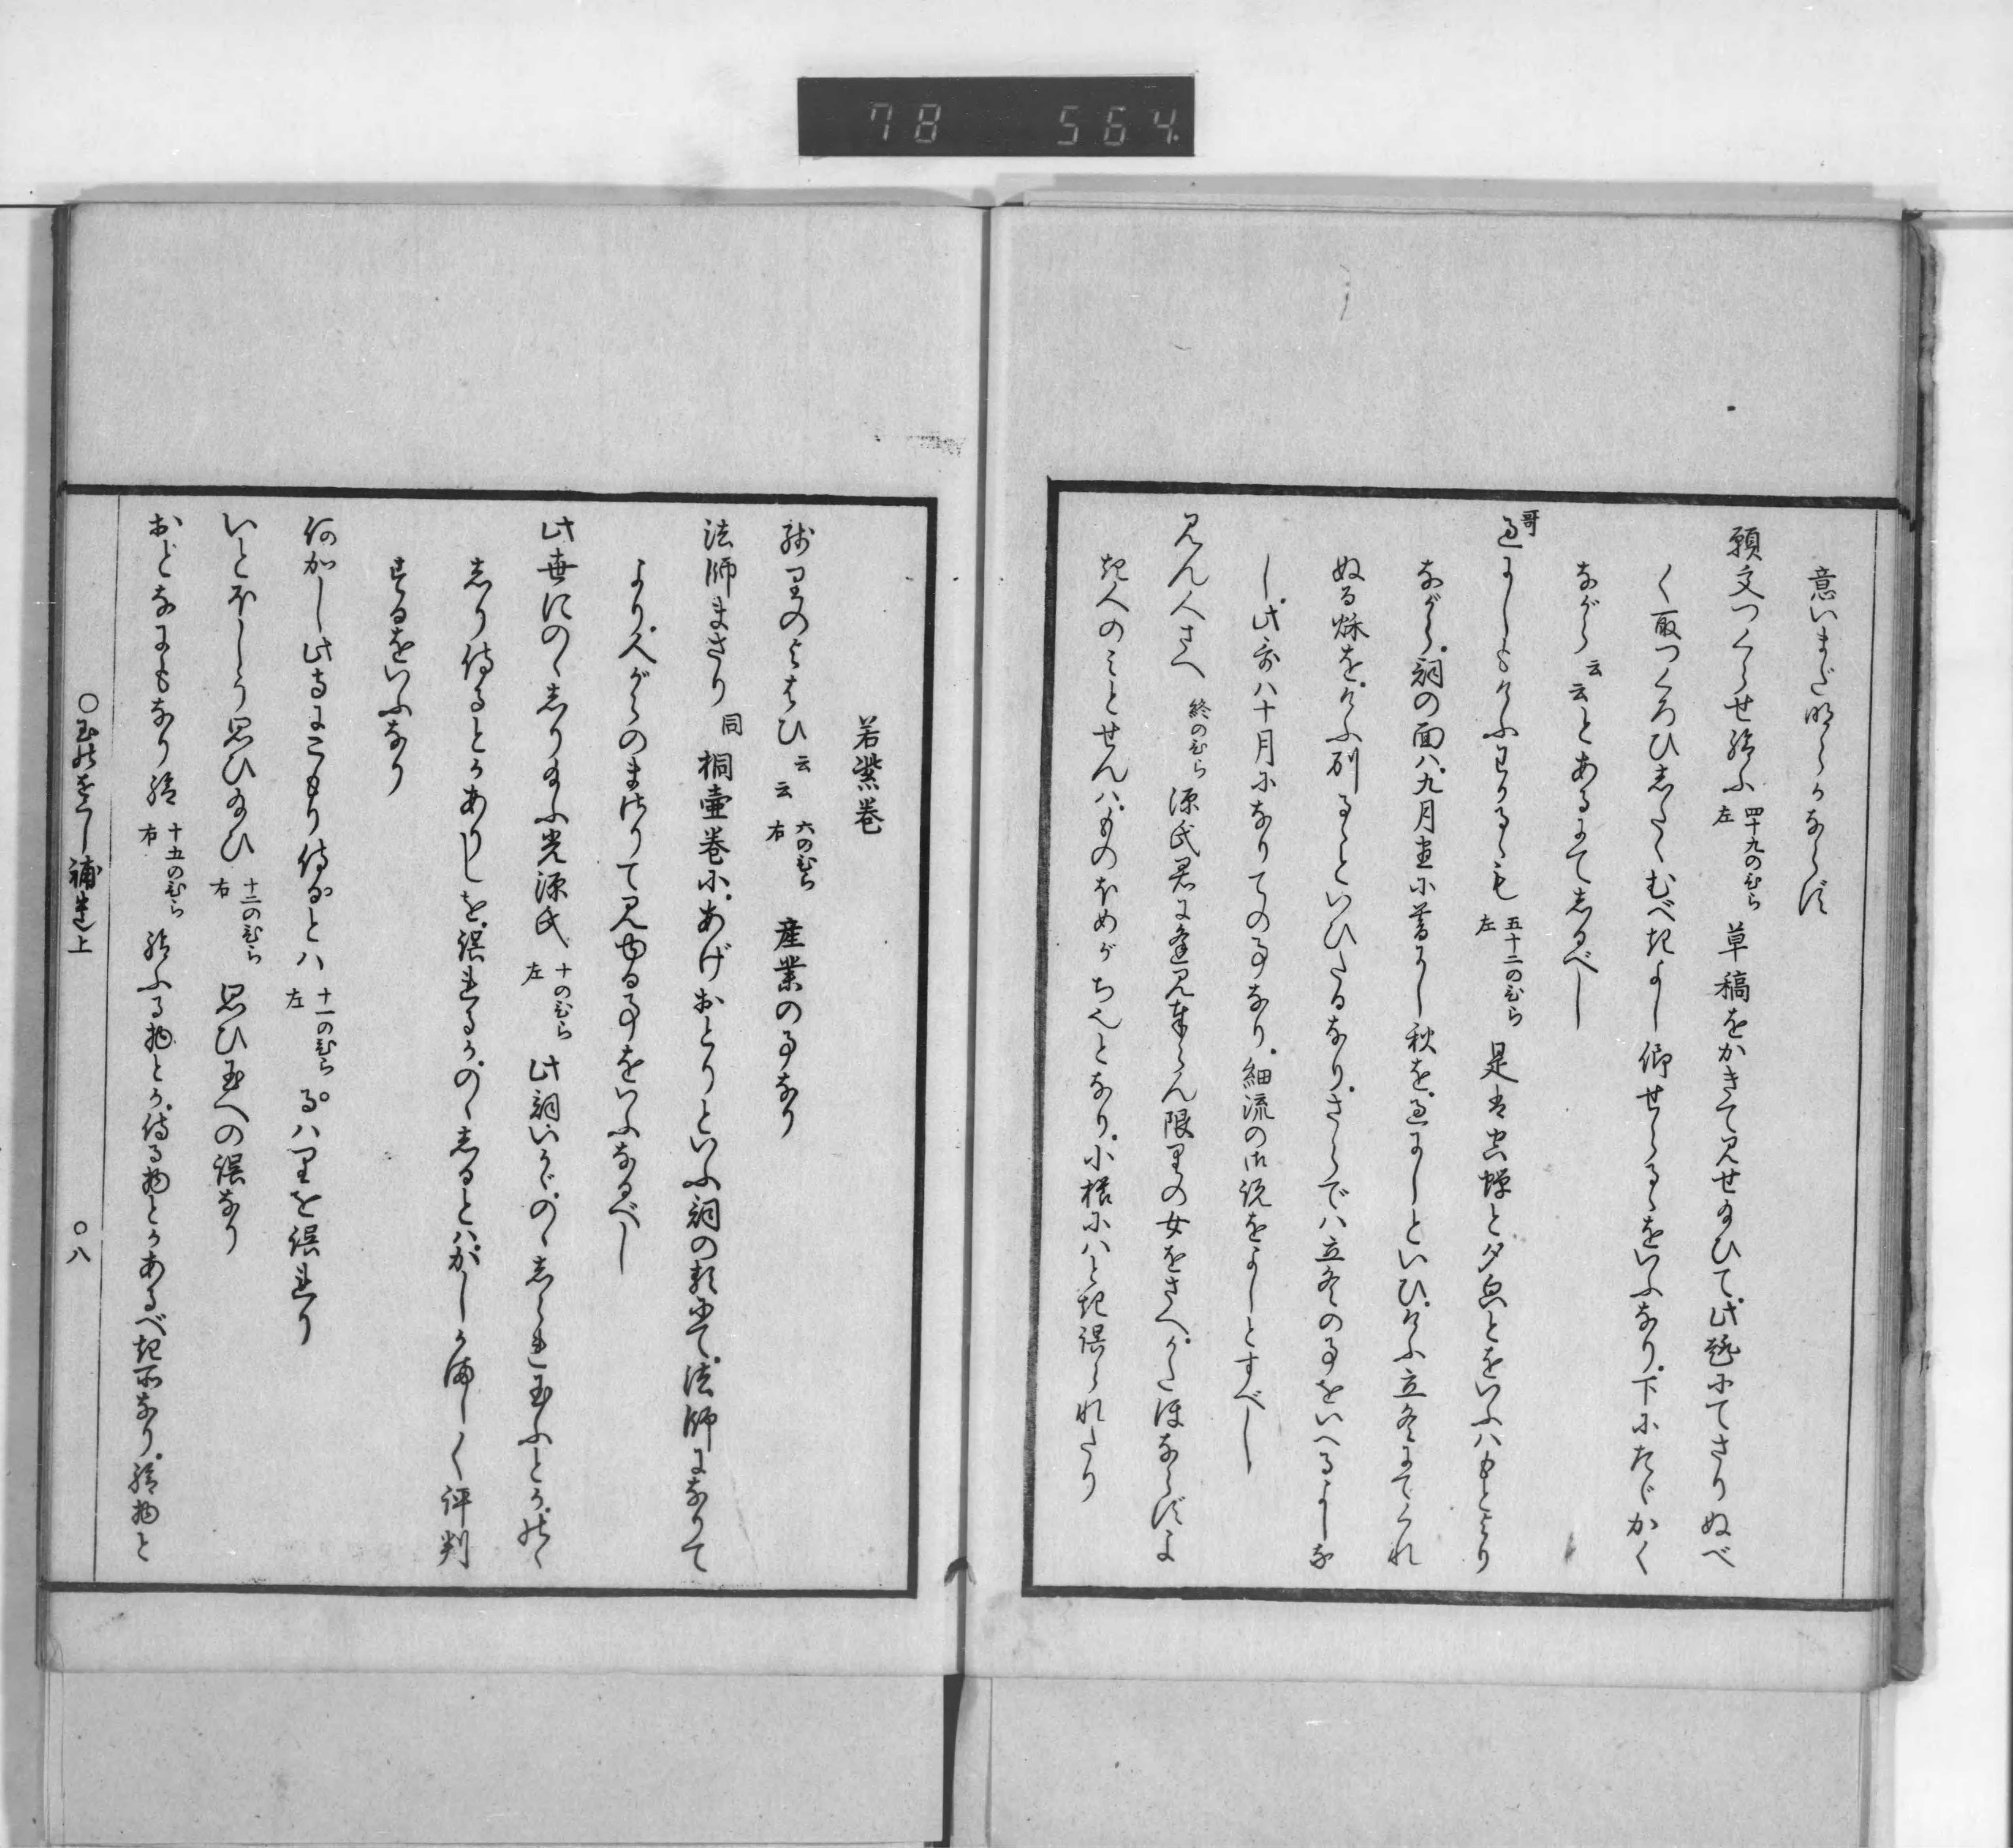 78 564
意いまだ明らかならず
願文つくらせ給ふ 四十九のひら左 草稿をかきて見せ給ひて此趣にてさりぬべ
く取つくろひしたゝむべきよし仰せらるゝをいふなり下にたゞかく
ながら云云とあるにてしるべし
哥 過にしもけふわかるゝも 五十二のひら左 是は空蝉と夕皃とをいふハもとより
ながら詞の面ハ九月尽に暮にし秋を過にしといひけふ立冬にてくれ
ぬる秋をけふ別るゝといひたるなりさらでハ立冬の事をいへるよしな
し此哥ハ十月になりての事なり細流の御説をよしとすべし
見ん人さへ 終のひら 源氏君に逢見奉らん限りの女をさへかたほならずよ
き人のことせんハものほめがちんとなり小櫛にハとき誤られたり
若紫巻
残りのよはひ云云 六のひら右 産業の事なり
法師まさり 同 桐壷巻にあげおとりといふ詞の類にて法師になりて
より人がらのまさりて見ゆる事をいふなるべし
此世にのゝしり給ふ光源氏 十のひら左 此詞いかゞのゝしられ玉ふとかのゝ
しり侍るとかありしを誤れるかのゝしるとハかしかましく評判
するをいふなり
何がし此寺にこもり侍るとハ 十一のひら左 るハりを誤れり
いとほしう思ひ給ひ 十二のひら右 思ひ玉への誤なり
おどなにもなり給 十五のひら右 給ふる物とか侍る物とかあるべき所なり給物と
○玉のをくし補遺上 ○八